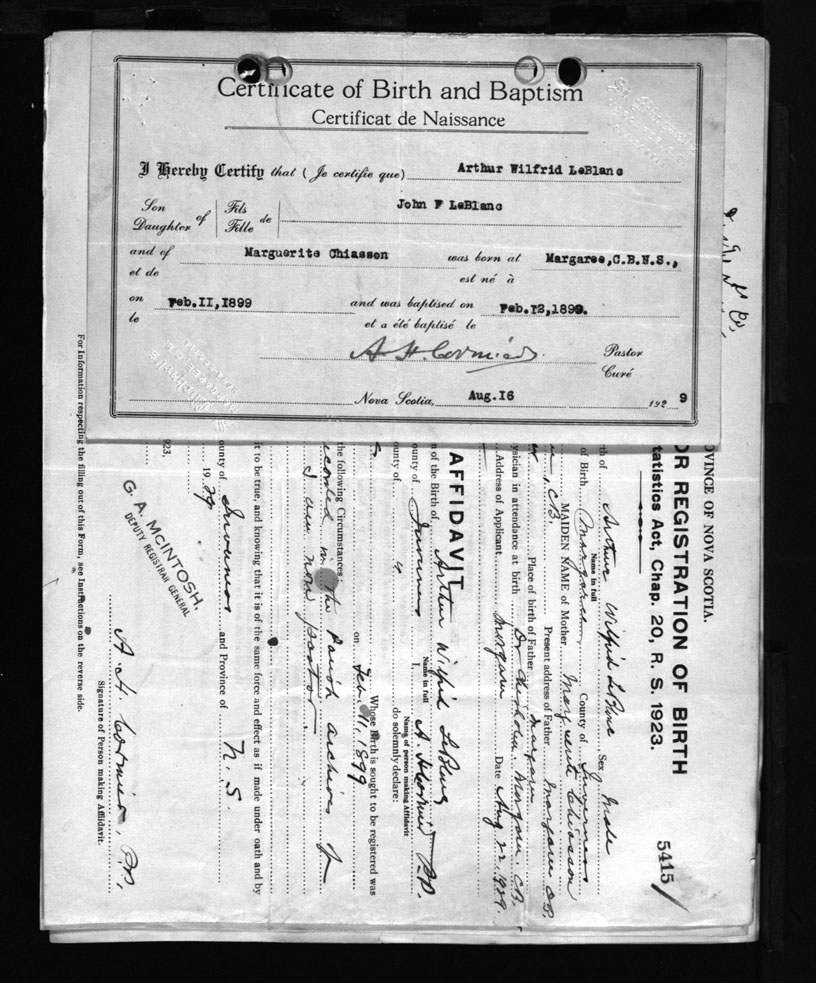 Certificate of Birth and Baptism
Certificat de Naissance
I Hereby Certify that (Je certifie que) Arthur Wilfrid LeBlanc
Son Daughter of Fils Fille de John F LeBlanc
and of Marguerite Chiasson was born at Margaree,C.B.N.S.,
et de est né à
on Feb.II,1899 and was baptised on Feb.12,1899.
le et a été baptisé le
A. H. Cormier Pastor
Curé
Nova Scotia, Aug.16 192 9
OVINCE OF NOVA SCOTIA.
OR REGISTRATION OF BIRTH
tatistics Act, Chap. 20, R. S. 1923.
5415
th of Arthur Wilfrid LeBlanc Sex Male
Name in full
of Birth, Margaree County of Inverness
MAIDEN NAME of Mother Marguerite Chiasson
, C.B. Present address of Father Margaree C.B.
Place of birth of Father Margaree
ysician in attendance at birth Dr Chisholm, Margaree, C.B.
Address of Applicant Margaree Date Aug 22, 1929.
AFFIDAVIT
n of the Birth of Arthur Wilfrid LeBlanc
Name in full
ounty of Inverness I, A H Cormier P.P.
Name of person making Affidavit
ounty of do solemnly declare:
Whose Birth is sought to be registered was
on Feb. 11, 1899
the following Circumstances:
recorded in the Parish archives I
am now pastor.
t to be true, and knowing that it is of the same force and effect as if made under oath and by
ounty of Inverness and Province of N.S.
19 29
G. A. McINTOSH,
DEPUTY REGISTRAR GENERAL
923.
A. H. Cormier, P.P.
Signature of Person making Affidavit.
For Information respecting the filling out of this Form, see Instructions on the reverse side.